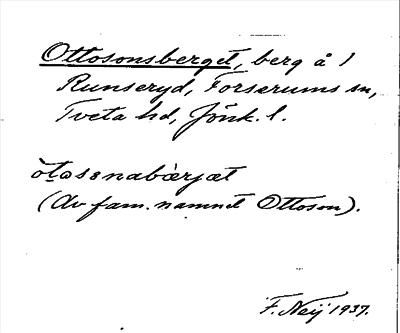 Ottosonsberget, berg å 1
Runseryd, Forserums sn,
Tveta hd, Jönk. l.
òtasɘnabærjæt
(Av fam. namnet Ottoson).
F. Neij 1937.